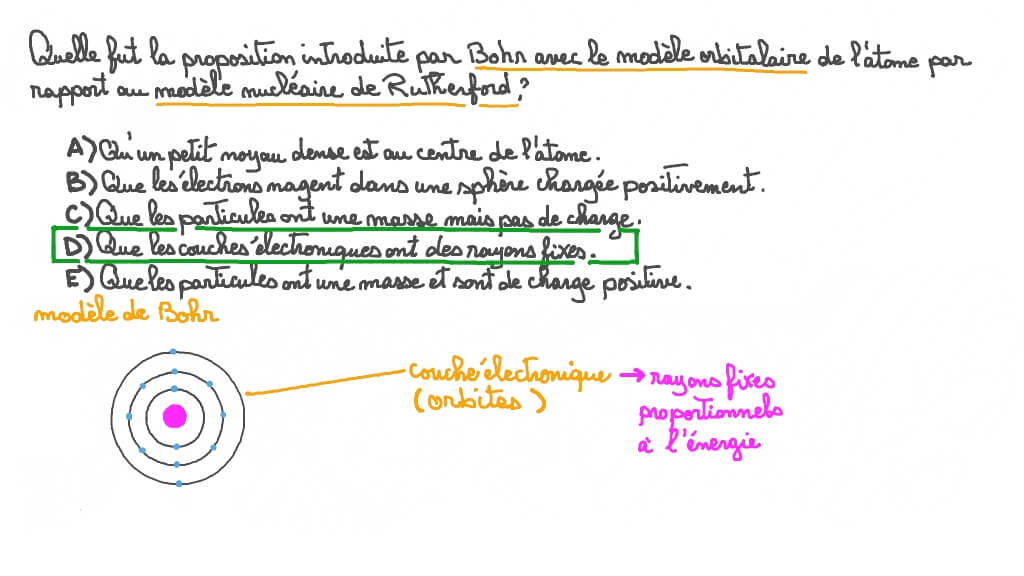 Quelle fut la proposition introduite par Bohr avec le modèle orbitalaire de l'atome par
rapport au modèle nucléaire de Rutherford ?
A) Qu'un petit noyau dense est au centre de l'atome.
B) Que les électrons nagent dans une sphère chargée positivement.
C) Que les particules ont une masse mais pas de charge.
D) Que les couches électroniques ont des rayons fixes.
E) Que les particules ont une masse et sont de charge positive.
modèle de Bohr
couche électronique → rayons fixes
(orbites) proportionnels
à l'énergie